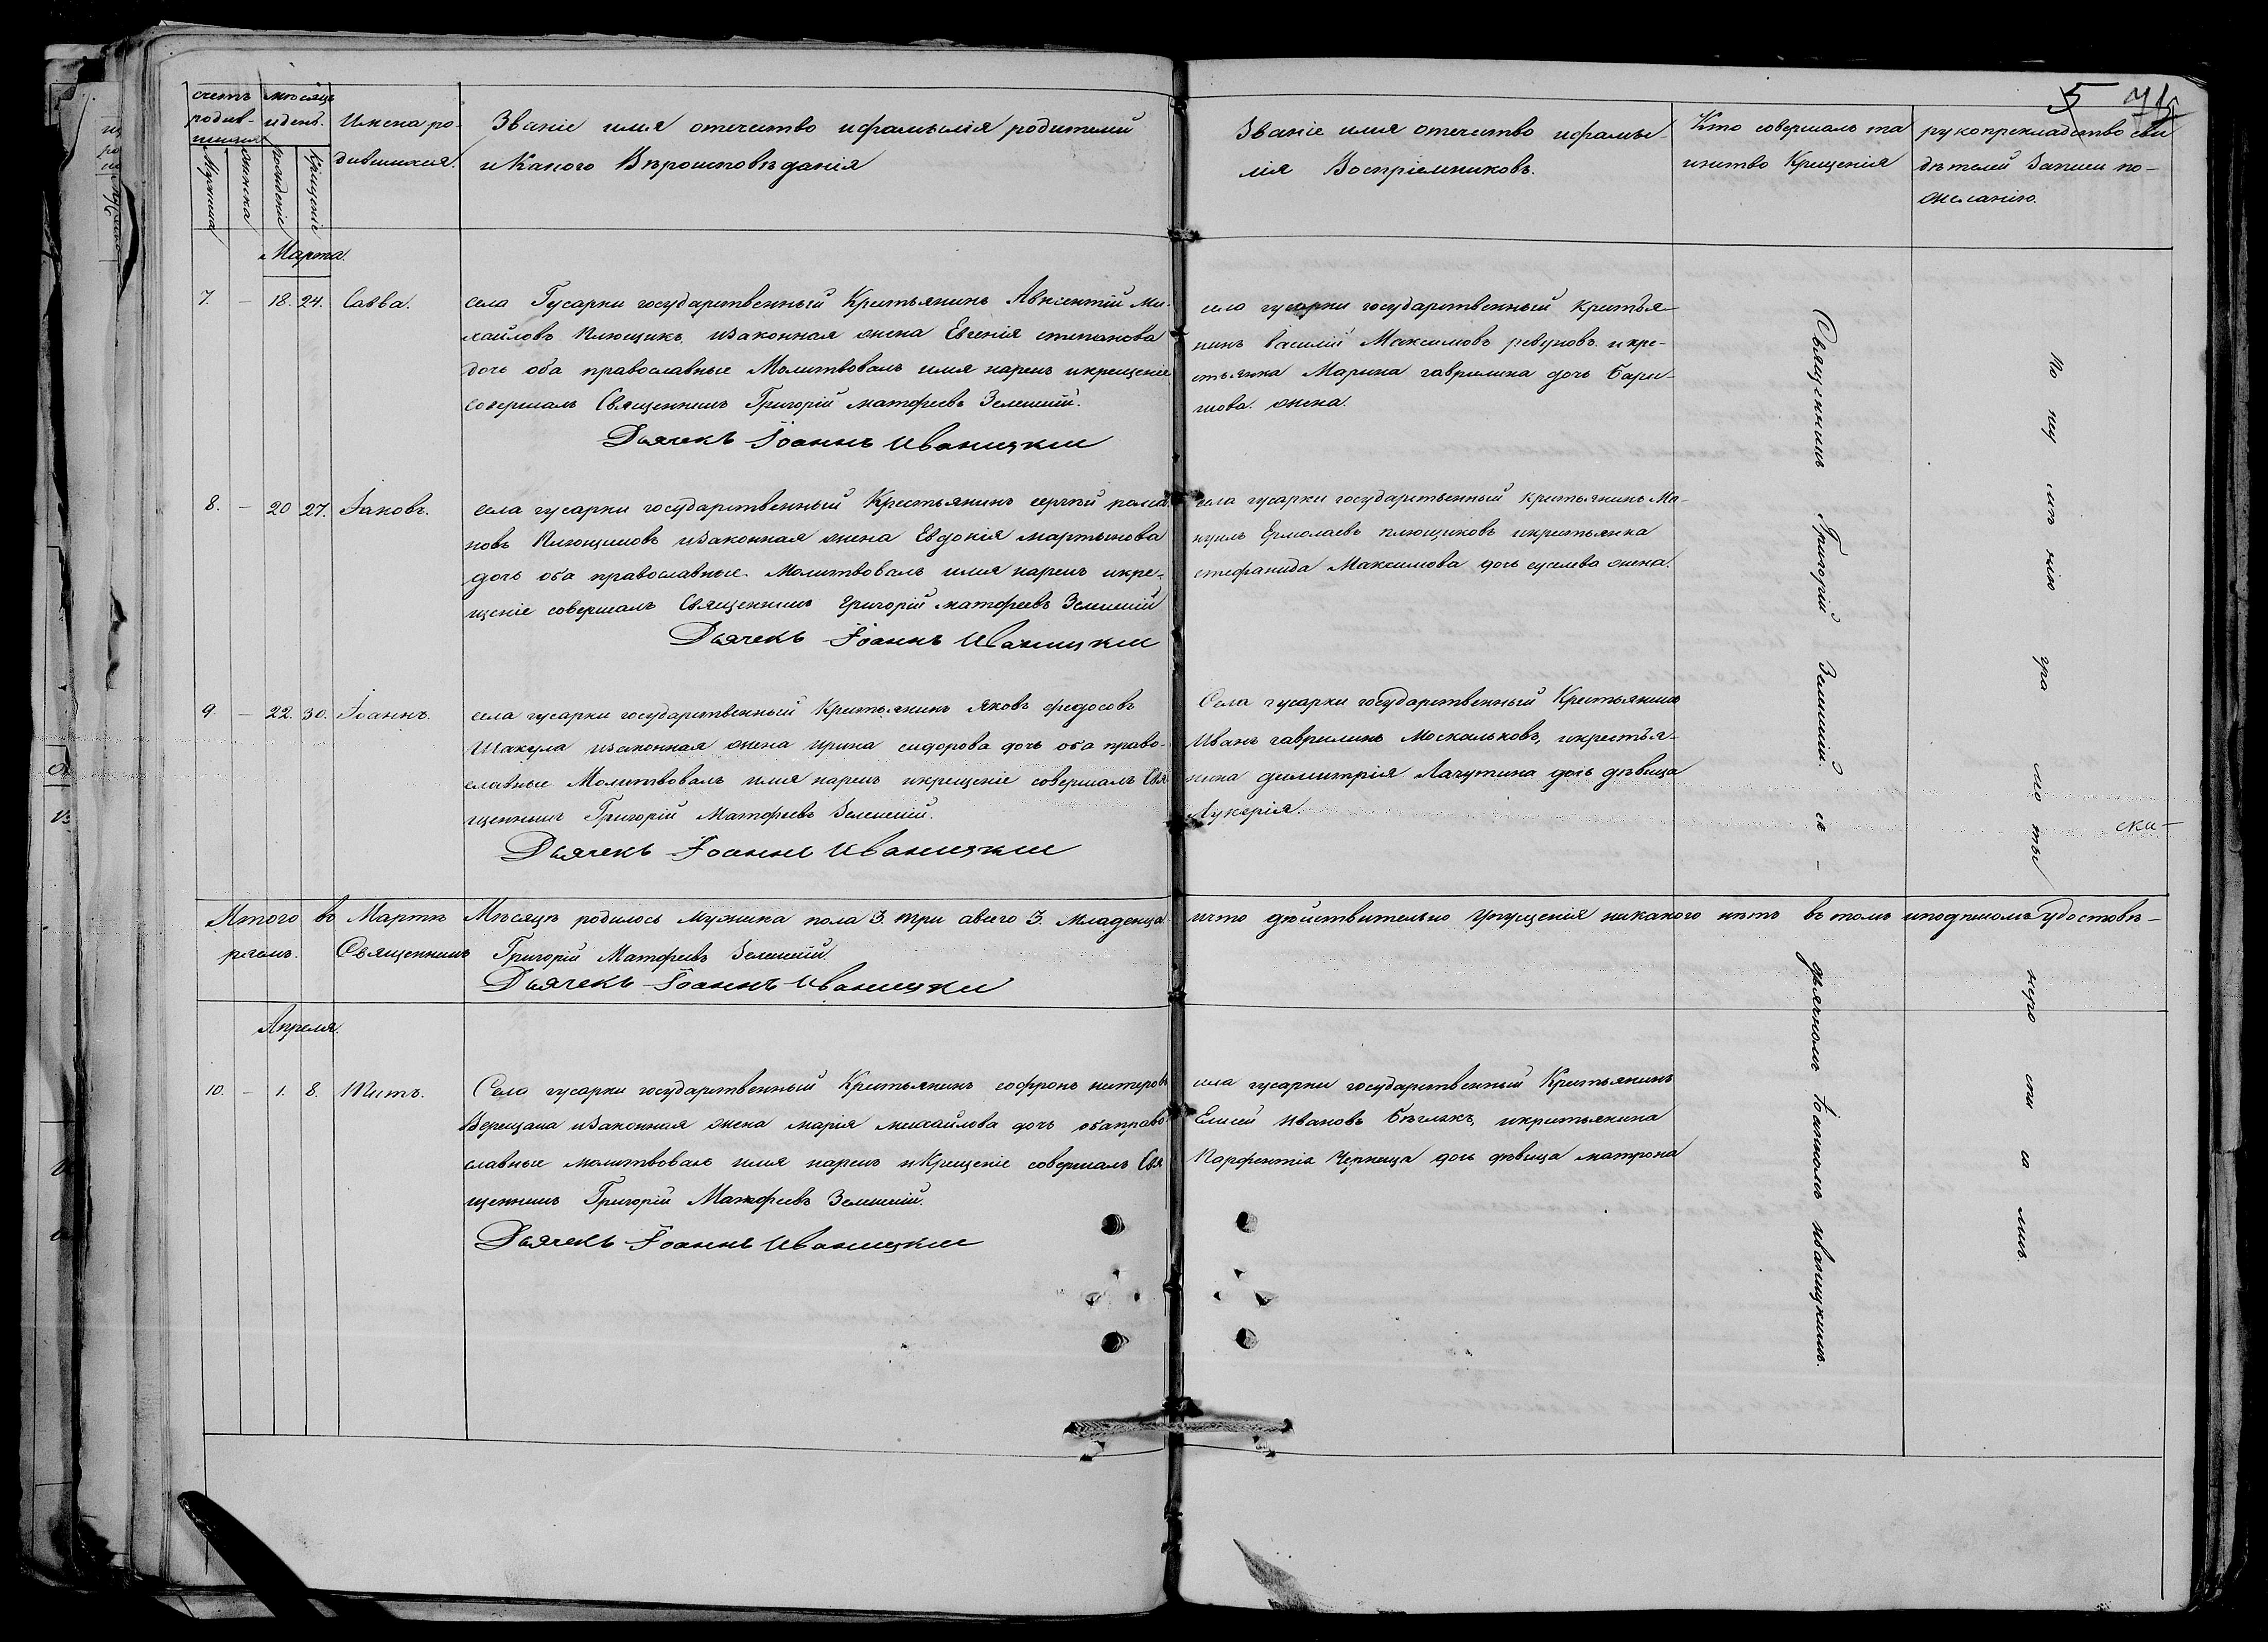 5 71
счетъ родив-шихся
Мужеска
Женска
мѣсяцъ и день.
рожденіе
Крещеніе
Имена ро-
дившихся.
Званіе имя отечество ифамилія родителей
и Какого Вѣроисповѣданія
Званіе имя отечество ифамы-
лія Воспріемниковъ.
Кто совершалъ та
инство Крещенія
рукоприкладство сви
дѣтелей Записи по-
желанію.
Марта.
7. — 18. 24. Савва.
села Гусарки государственный Крестьянинъ Авксентій Ми-
хайловъ Плющикъ, изаконная жена Евгенія степанова
дочь оба православные Молитвовалъ имя нарекъ икрещеніе
совершалъ Священникъ Григорій матфеевъ Зеленскій.
Дьячекъ Іоаннъ Иваницкии
село гусарки государственный крестья
нинъ василій Максимовъ ревуновъ. икре-
стьянка Марина гаврилина дочь Бари-
шова. жена.
8. — 20 27. Іаковъ.
села гусарки государственный Крестьянинъ сергѣй рома
новъ Плющиковъ изаконная жена Евдокія мартынова
дочь оба православные. Молитвовалъ имя нарекъ икре-
щеніе совершалъ Священникъ Григорій матфеевъ Зеленскій
Дьячекъ Іоаннъ Иваницкии
села гусарки государственный крестьянинъ Ма-
нуилъ Ермолаевъ плющиковъ икрестьянка
стефанида Максимова дочь суслева жена.
9. — 22. 30. Іоаннъ.
села гусарки государственный Крестьянинъ Яковъ федосовъ
Шакула изаконная жена ирина сидорова дочь оба право-
славные Молитвовалъ имя нарекъ икрещеніе совершалъ Свя
щенникъ Григорій Матфеевъ Зеленскій.
Дьячекъ Іоаннъ Иваницкии
Села гусарки государственный Крестьянинъ
Иванъ гаврилинъ Москальковъ, икрестья-
нина димитрія Лагутина дочь дѣвица
Лукерія.
Священникъ Григорій Зеленскій. съ —
дьячкомъ Іоанномъ иваницкимъ.
По не умѣнію гра моты
ски-
негра
Итого въ Мартѣ Мѣсяцѣ родилось мужика пола 3. три авсего 3. младенца ичто дѣйствительно упущенія никакого нѣтъ въ томъ иподписомъ удостовѣ-
ряемъ. Священникъ Григорій Матфеевъ Зеленскій.
Дьячекъ Іоаннъ Иваницки
Апреля.
10. — 1. 8. Титъ.
Села гусарки государственный Крестьянинъ софронъ нестеровъ
Верещака изаконная жена марія михайлова дочь обаправо-
славные молитвовалъ имя нарекъ иКрещеніе совершалъ Свя
щенникъ Григорій Матфеевъ Зеленскій.
Дьячекъ Іоаннъ Иваницкии
села гусарки государственный Крестьянинъ
Елисей Ивановъ Бѣглякъ, икрестьянина
Парфентія Черныша дочь дѣвица матрона